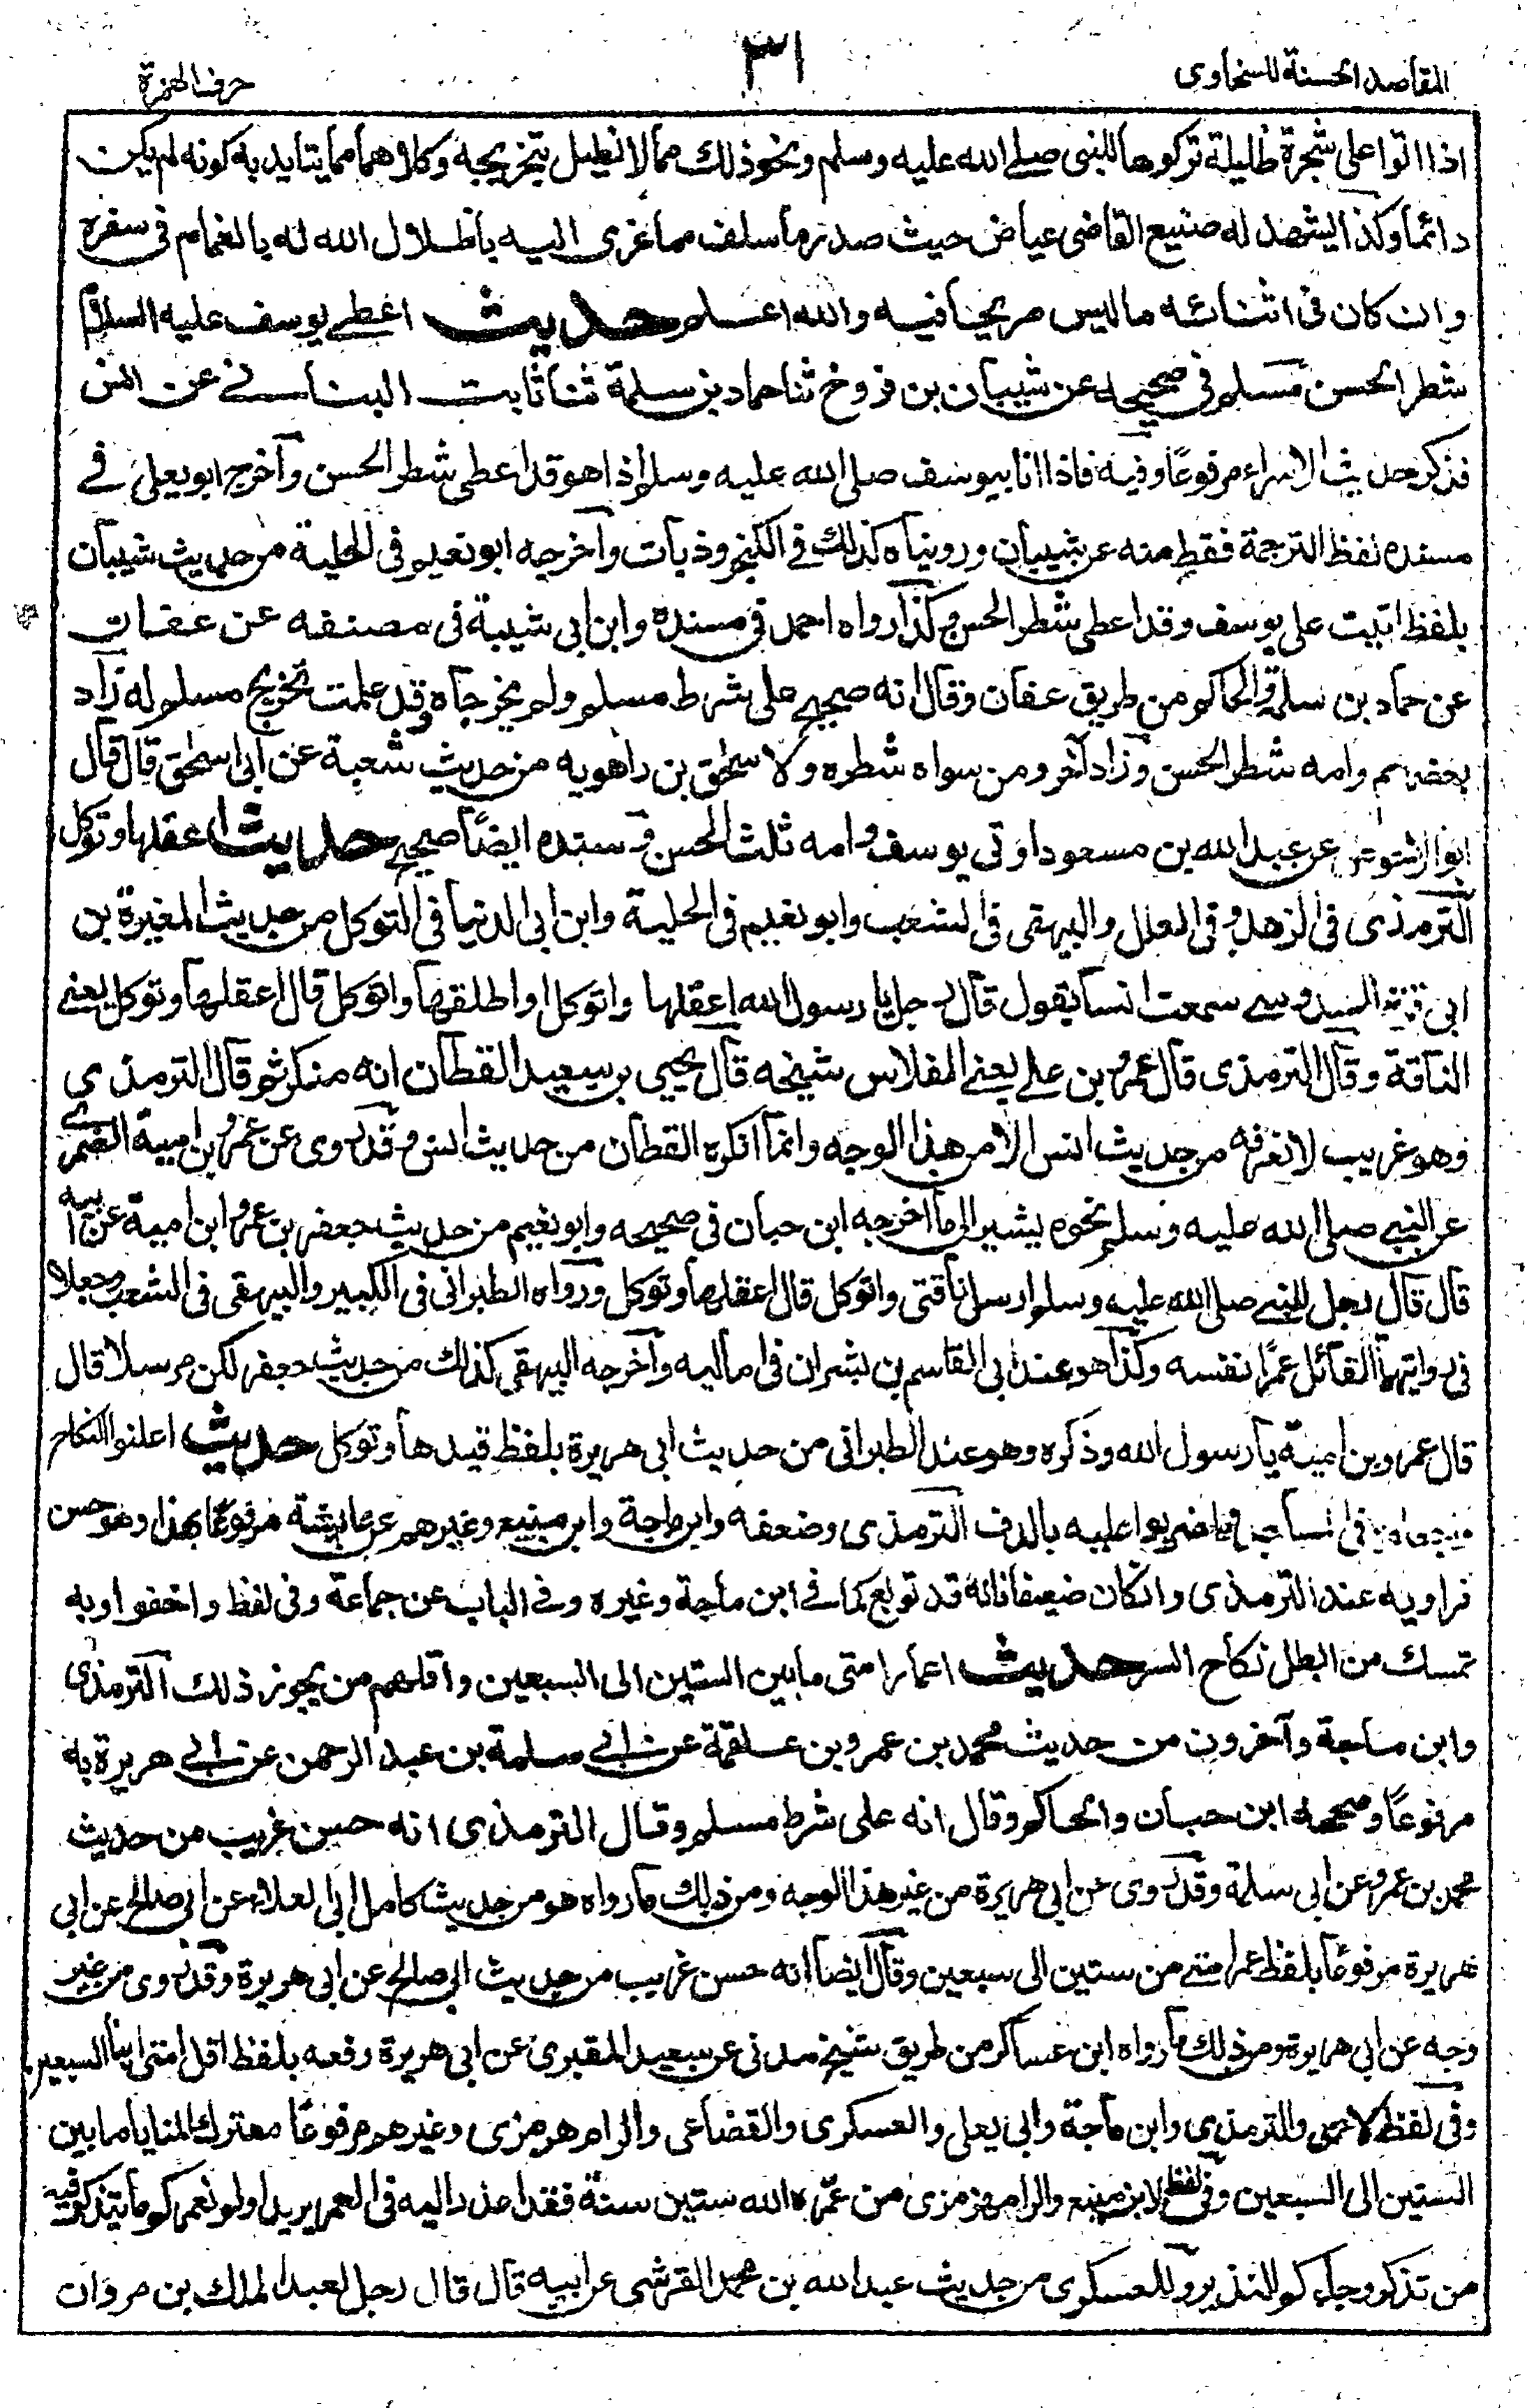 المقاصد الحسنة للسخاوى
٣١
حرف الهمزة
اذا اتوا على شجرة ظليلة تركوها للنبى صلى الله عليه وسلم ونحو ذلك مما لا نطيل بتخريجه وكلاهما مما يتايد به كونه لم يكن
دائما وكذا يشهد له صنيع القاضى عياض حيث صدر ما سلف مما عزى اليه باظلال الله له بالغمام فى سفره
وان كان فى اثنائه ما ليس صريحا فيه والله اعلم حديث اعطى يوسف عليه السلام
شطر الحسن مسلم فى صحيحه عن شيبان بن فروخ ثنا حماد بن سلمة ثنا ثابت البنانى عن انس
فذكر حديث الاسراء مرفوعًا وفيه فاذا انا بيوسف صلى الله عليه وسلم اذا هو قد اعطى شطر الحسن وأخرج ابو يعلى فى
مسنده لفظ الترجمة فقط منه عن شيبان ورويناه كذلك فى الكنجروذيات وأخرجه ابو نعيم فى الحلية من حديث شيبان
بلفظ اتيت على يوسف وقد اعطى شطر الحسن وكذا رواه احمد فى مسنده وابن ابى شيبة فى مصنفه عن عفان
عن حماد بن سلمة والحاكم من طريق عفان وقال انه صحيح على شرط مسلم ولم يخرجاه وقد علمت تخريج مسلم له زاد
بعضهم وامه شطر الحسن وزاد آخر ومن سواه شطره ولاسحٰق بن راهويه من حديث شعبة عن ابى اسحٰق قال قال
ابو الاحوص عن عبد الله بن مسعود اوتى يوسف وامه ثلث الحسن وسنده ايضًا صحيح حديث اعقلها وتوكل
الترمذى فى الزهد وفى العلل والبيهقى فى الشعب وابو نعيم فى الحلية وابن ابى الدنيا فى التوكل من حديث المغيرة بن
ابى قرة السدوسى سمعت انسا يقول قال رجل يا رسول الله اعقلها واتوكل او اطلقها واتوكل قال اعقلها وتوكل يعنى
الناقة وقال الترمذى قال عمرو بن على يعنى الفلاس شيخه قال يحيى بن سعيد القطان انه منكر ثم قال الترمذى
وهو غريب لا نعرفه من حديث انس الا من هذا الوجه وانما انكره القطان من حديث انس وقد روى عن عمرو بن امية الضمرى
عن النبى صلى الله عليه وسلم نحوه يشير الى ما اخرجه ابن حبان فى صحيحه وابو نعيم من حديث جعفر بن عمرو ابن امية عن ابيه
قال قال رجل للنبى صلى الله عليه وسلم ارسل ناقتى واتوكل قال اعقلها وتوكل ورواه الطبرانى فى الكبير والبيهقى فى الشعب وجعلا
فى روايتهما القائل عمرًا نفسه وكذا هو عند ابى القاسم بن بشران فى اماليه وأخرجه البيهقى كذلك من حديث جعفر لكن مرسلا قال
قال عمرو بن امية يا رسول الله وذكره وهو عند الطبرانى من حديث ابى هريرة بلفظ قيدها وتوكل حديث اعلنوا النكاح
فى المساجد واضربوا عليه بالدف الترمذى وضعفه وابن ماجة وابن منيع وغيرهم عن عايشة مرفوعًا بهذا وهو حسن
فراويه عند الترمذى وان كان ضعيفا فانه قد توبع كما فى ابن ماجة وغيره وفى الباب عن جماعة وفى لفظ واخفوا وبه
تمسك من ابطل نكاح السر حديث اعمار امتى ما بين الستين الى السبعين واقلهم من يجوز ذلك الترمذى
وابن ماجة وآخرون من حديث محمد بن عمرو بن علقمة عن ابى سلمة بن عبد الرحمن عن ابى هريرة به
مرفوعًا وصححه ابن حبان والحاكم وقال انه على شرط مسلم وقال الترمذى انه حسن غريب من حديث
محمد بن عمرو عن ابى سلمة وقد روى عن ابى هريرة من غير هذا الوجه ومن ذلك ما رواه هو من حديث كامل ابى العلاء عن ابى صالح عن ابى
هريرة مرفوعًا بلفظ عمر امتى من ستين الى سبعين وقال ايضا انه حسن غريب من حديث ابى صالح عن ابى هريرة وقد روى من غير
وجه عن ابى هريرة ومن ذلك ما رواه ابن عساكر من طريق شيخ مدنى عن سعيد المقبرى عن ابى هريرة رفعه بلفظ اقل امتى ابناء السبعين
وفى لفظ لاحمد والترمذى وابن ماجة وابى يعلى والعسكرى والقضاعى والرامهرمزى وغيرهم مرفوعًا معترك المنايا ما بين
الستين الى السبعين وفى لفظ لابن منيع والرامهرمزى من عمّره الله ستين سنة فقد اعذر اليه فى العمر يريد اولم نعمركم ما يتذكر فيه
من تذكر وجاءكم النذير وللعسكرى من حديث عبد الله بن محمد القرشى عن ابيه قال قال رجل لعبد الملك بن مروان